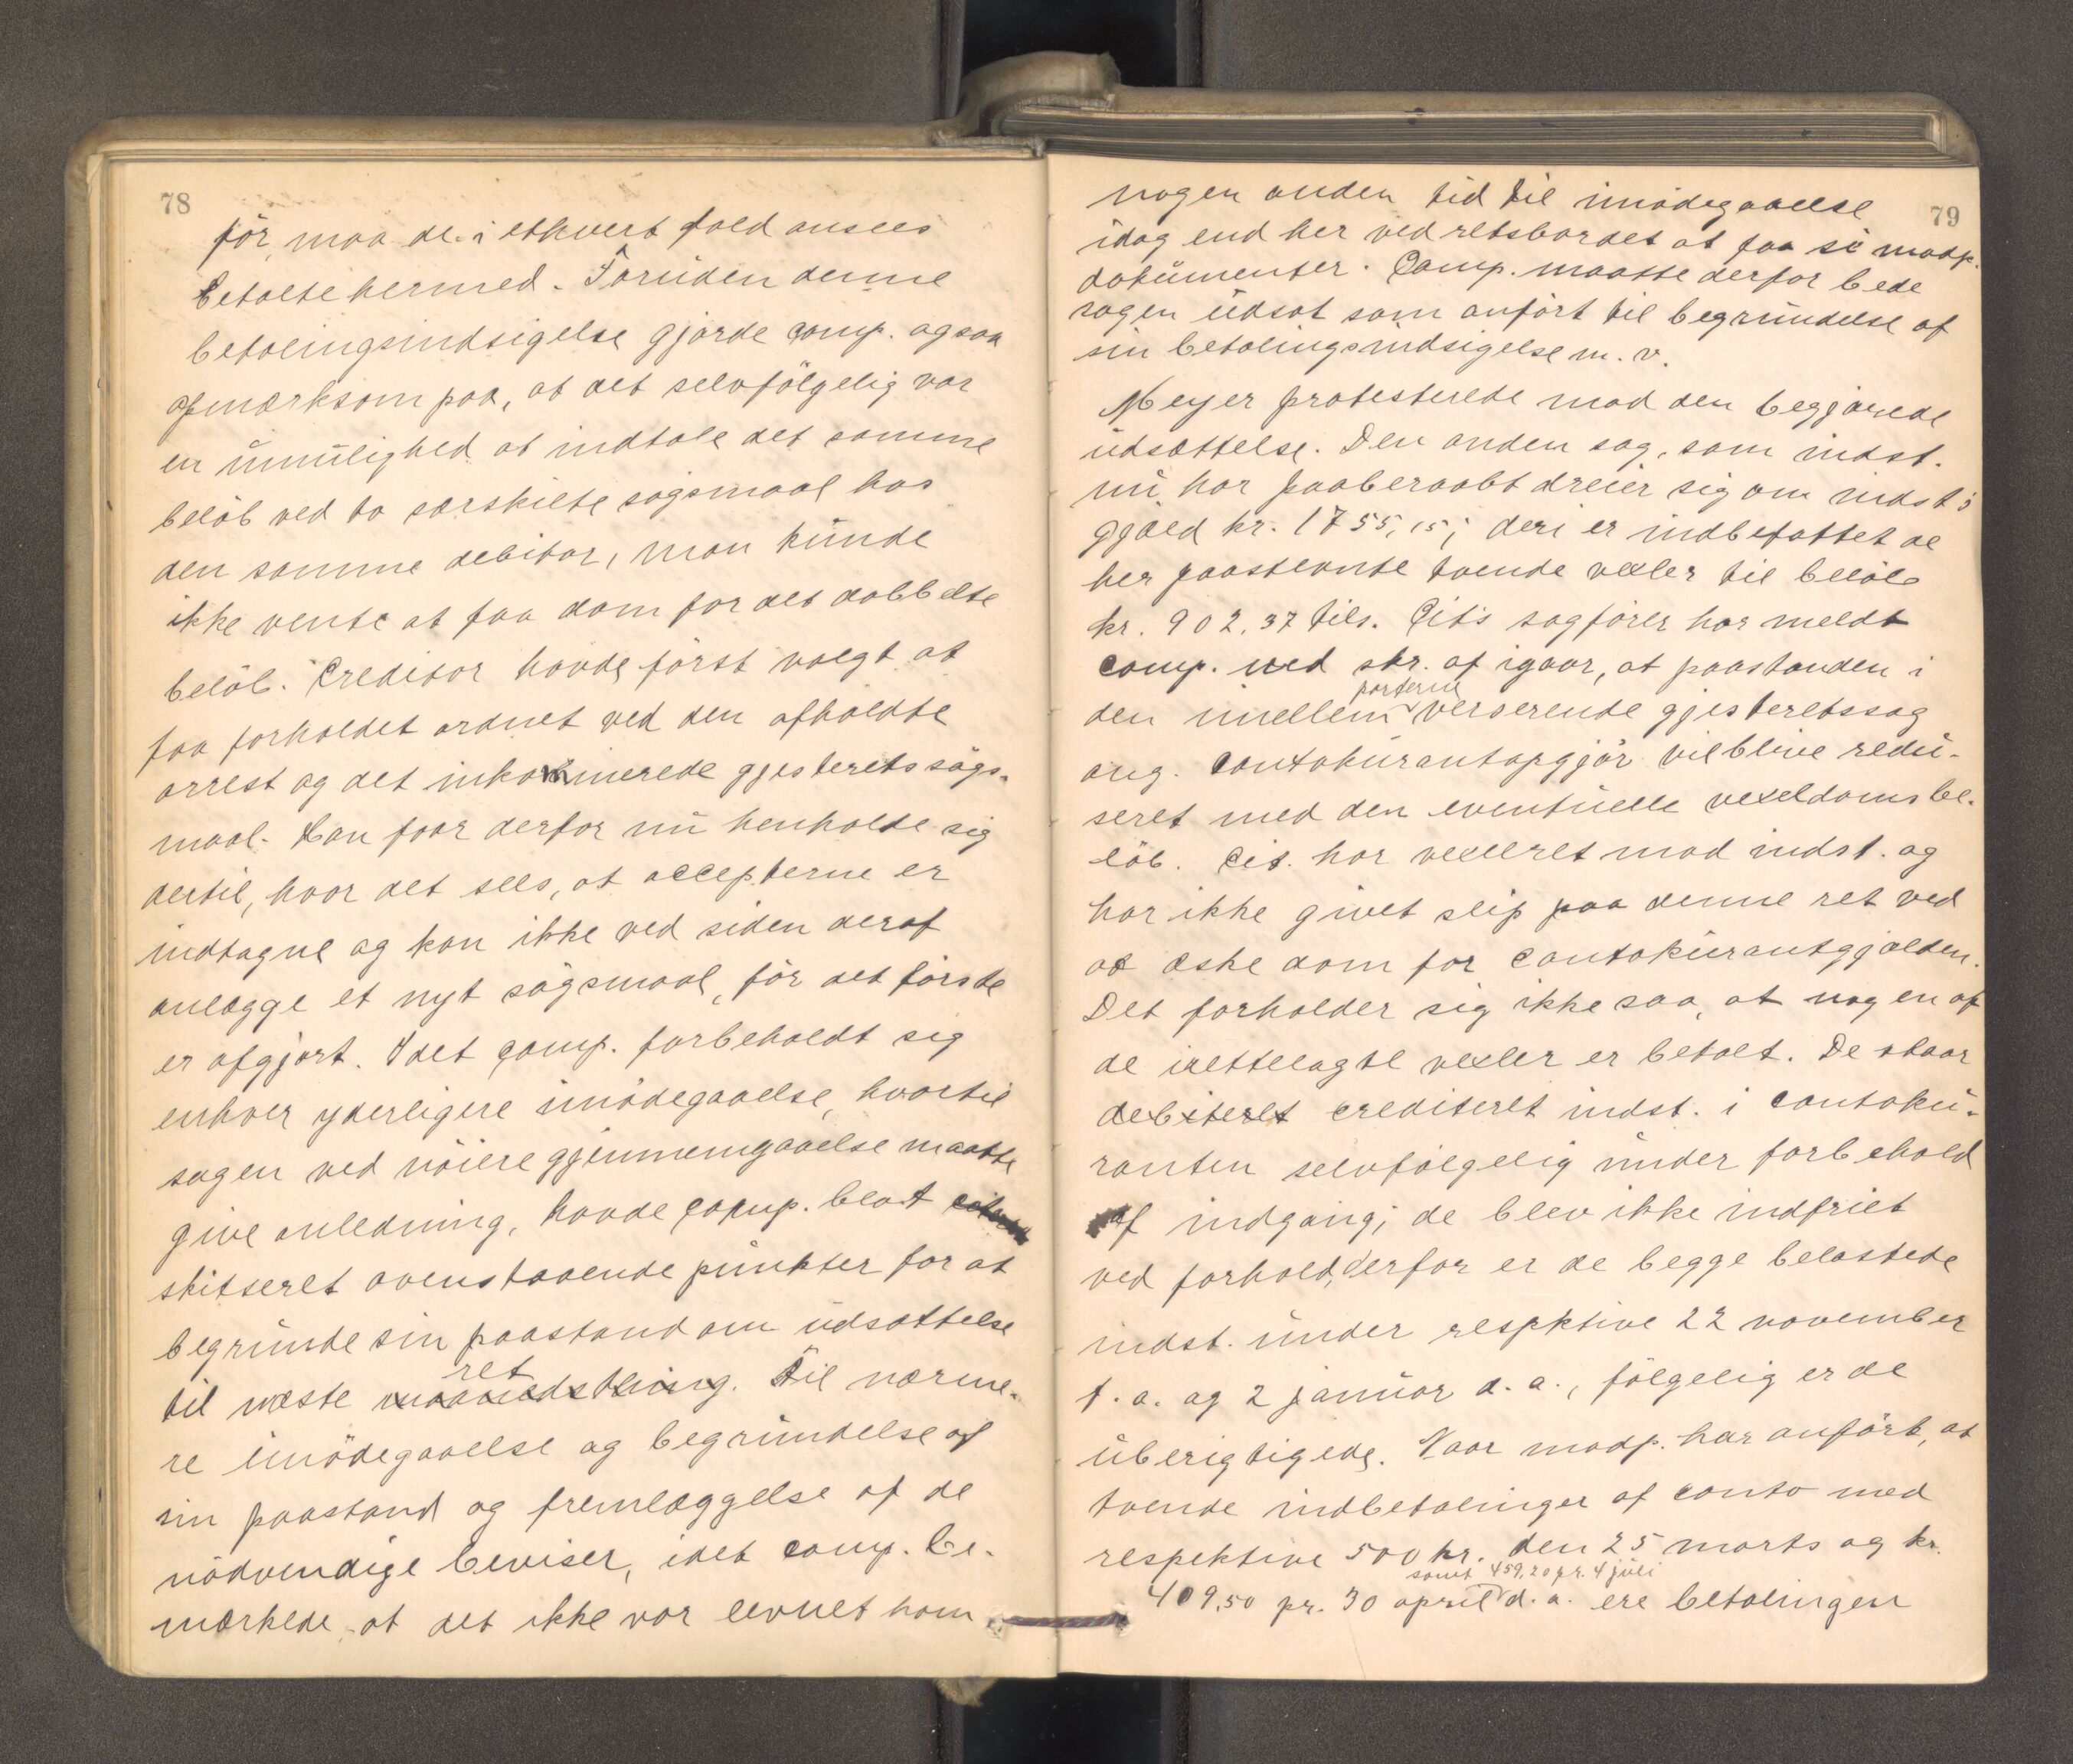 78
før, maa de i ethvert fald ansees
betalte hermed. Foruden denne
betalingsindsigelse gjorde comp. ogsaa
opmærksom paa, at det selvfølgelig var
en umulighed at indtale det samme
beløb ved to særskilte søgsmaal hos
den samme debitor, man kunde
ikke vente at faa dom for det dobbelte
beløb. Creditor havde først valgt at
faa forholdet ordnet ved den afholdte
arrest og det inkaminerede gjesteretssøgs-
maal. Han faar derfor nu henholde sig
dertil, hvor det sees, at accepterne er
indtagne og kan ikke ved siden deraf
anlægge et nyt søgsmaal, før det første
er afgjort. Idet comp. forbeholdt sig
enhver yderligere imødegaaelse, hvortil
sagen ved nøiere gjennemgaaelse maatte
give anledning, havde comp. blot
skitseret ovenstaaende punkter for at
begrunde sin paastand om udsættelse
ret
til næste maanedsthing. Til nærme-
re imødegaaelse og begrundelse af
sin paastand og fremlæggelse af de
nødvendige beviser, idet comp. be-
mærkede, at det ikke var levnet ham
79
nogen anden tid til imødegaaelse
idag end her ved retsbordet at faa se modp.
dokumenter. Comp. maatte derfor bede
sagen udsat som anført til begrundelse af
sin betalingsindsigelse m. v.
Meyer protesterede mod den begjærede
udsættelse. Den anden sag, som indst.
nu har paaberaabt dreier sig om indst's
gjæld kr. 1755,15; deri er indbefattet de
her paastevnte tvende vexler til beløb
kr. 902,37 tils. Cit's sagfører har meldt
comp. ved skr. af igaar, at paastanden i
parterne
den imellem verserende gjesteretssag
ang. contokurantopgjør vil blive redu-
seret med den eventuelle vexeldomsbe-
løb. Cit. har vexelret mod indst. og
har ikke givet slip paa denne ret ved
at æske dom for contokurantgjælden.
Det forholder sig ikke saa, at nogen af
de irettelagte vexler er betalt. De staar
debiteret crediteret indst. i contoku-
ranten selvfølgelig under forbehold
af indgang; de blev ikke indfriet
ved forhold, derfor er de begge belastede
indst. under respktive 22 november
f. a. og 2 januar d. a., følgelig er de
uberigtigede. Naar modp. har anført, at
tvende indbetalinger af conto med
respektive 500 kr. den 25 marts og kr.
samt 459,20 pr. 4 juli
409,50 pr. 30 april d. a. ere betalingen